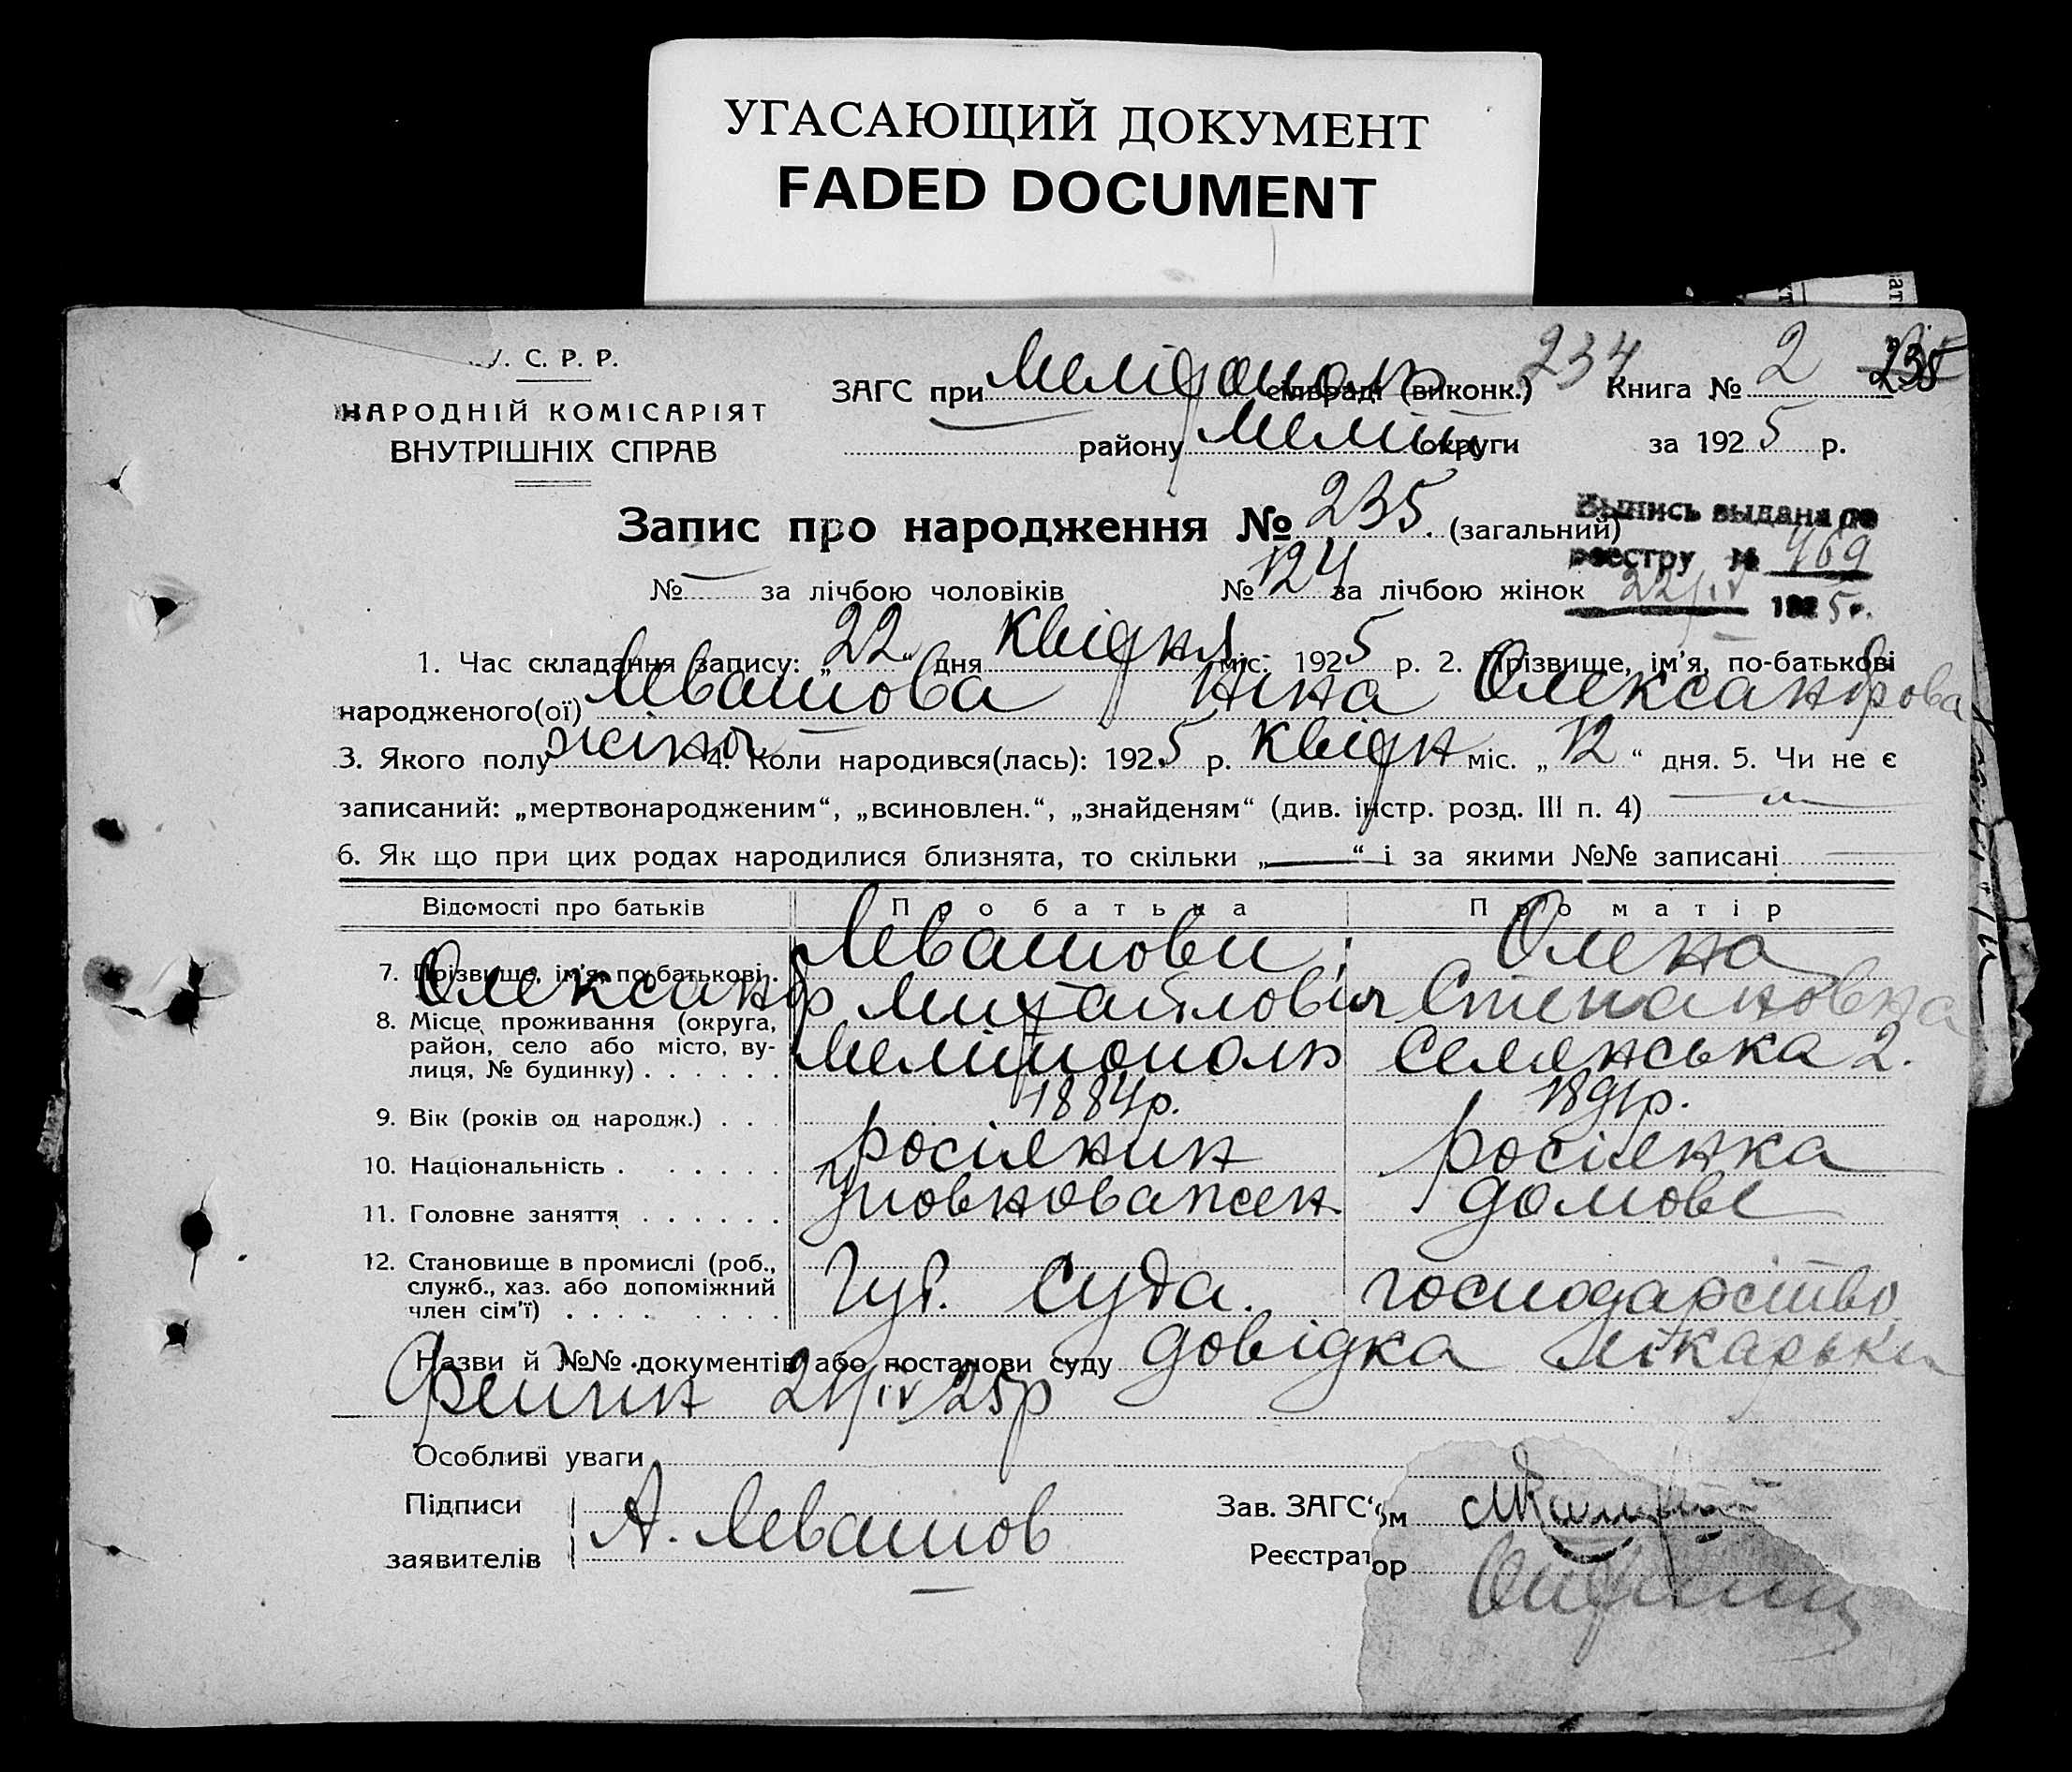 УГАСАЮЩИЙ ДОКУМЕНТ
FADED DOCUMENT
У. С. Р. Р.
НАРОДНІЙ КОМІСАРІЯТ
ВНУТРІШНІХ СПРАВ
ЗАГС при Мелітополь сільраді (виконк.) 234 Книга № 2 235
району Меліт округи за 1925 р.
Запис про народження № 235 (загальний)
№ — за лічбою чоловіків № 124 за лічбою жінок
Выпись выдана по
реестру № 469
22/IV 1925 г.
1. Час складання запису: „ 22 " дня квідня міс. 1925 р. 2. Прізвище, ім'я, по-батькові
народженого(ої) Левашова Ніна Олександрова
3. Якого полу жіноч 4. Коли народився(лась): 1925 р. квідн міс. „ 12 “ дня. 5. Чи не є
записаний: „мертвонародженим“, „всиновлен.“, „знайденям“ (див. інстр. розд. III п. 4)
6. Як що при цих родах народилися близнята, то скільки „ — “ і за якими №№ записані
Відомості про батьків Про батька Про матір
7. Прізвище, ім'я, по-батькові Левашови: Олена
Олександр Михайлович Степановна
8. Місце проживання (округа,
район, село або місто, ву-
лиця, № будинку) Мелітополь Селянська 2.
9. Вік (років од народж.) 1884р. 1891р.
10. Національність росіянин росіянка
11. Головне заняття уповноважен домове
12. Становище в промислі (роб.,
служб., хаз. або допоміжний
член сім'ї) Губ. суда. господарство
Назви й №№ документів або постанови суду довідка лікарьки
21/IV 25р
Особливі уваги
Підписи
заявителів А. Левашов
Зав. ЗАГС'ом
Реєстратор